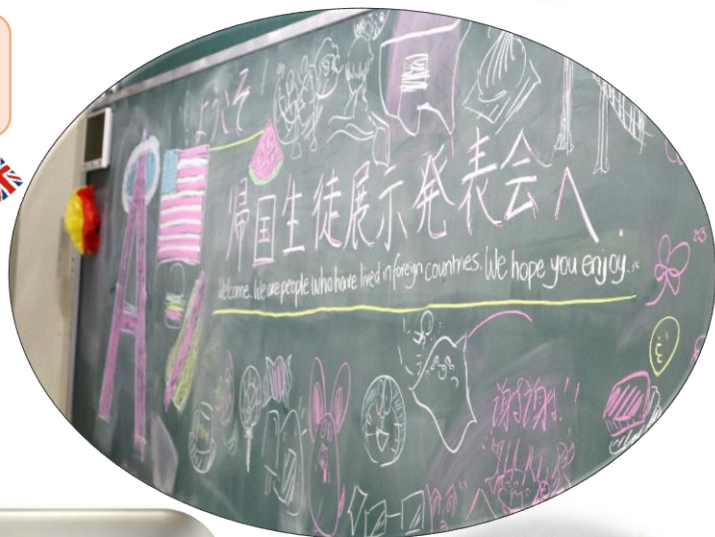 ようこそ
帰国生徒展示発表会へ
Welcome. We are people who have lived in foreign countries. We hope you enjoy.
谢谢!!